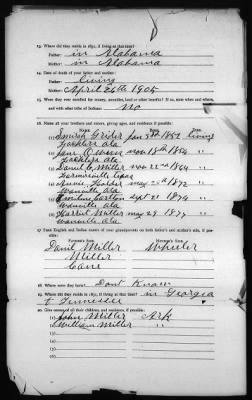 13. Where did they reside in 1851, if living at that time?
Father: in Alabama
Mother: in Alabama
14. Date of death of your father and mother:
Father: living
Mother: April 26th 1905
15. Were they ever enrolled for money, annuities, land or other benefits? If so, state when and where, and with what tribe of Indians:
No
16. Name all your brothers and sisters, giving ages, and residence if possible:
NAME
(1) Smirah Grider Jan 3rd 1852 living
(2) Jane Owens nov 15th 1854
(3) Daniel C. Miller nov 22nd 1864
(4) Annie 1872
(5) Emiline Carlton sept 21 1874
(6) Harriet Miller may 28 1877
17. Give English and Indian names of your grandparents on both father's and mother's side, if possible:
Father's Side. Mother's Side.
Danil Miller Wheeler
Miller
Cane
18. Where were they born? Dont Know
19. Where did they reside in 1851, if living at that time? in Georgia
& Tennessee
20. Give names of all their children, and residence, if possible:
(1) John Miller Ark
(2) William Miller
(3)
(4)
(5)
(6)